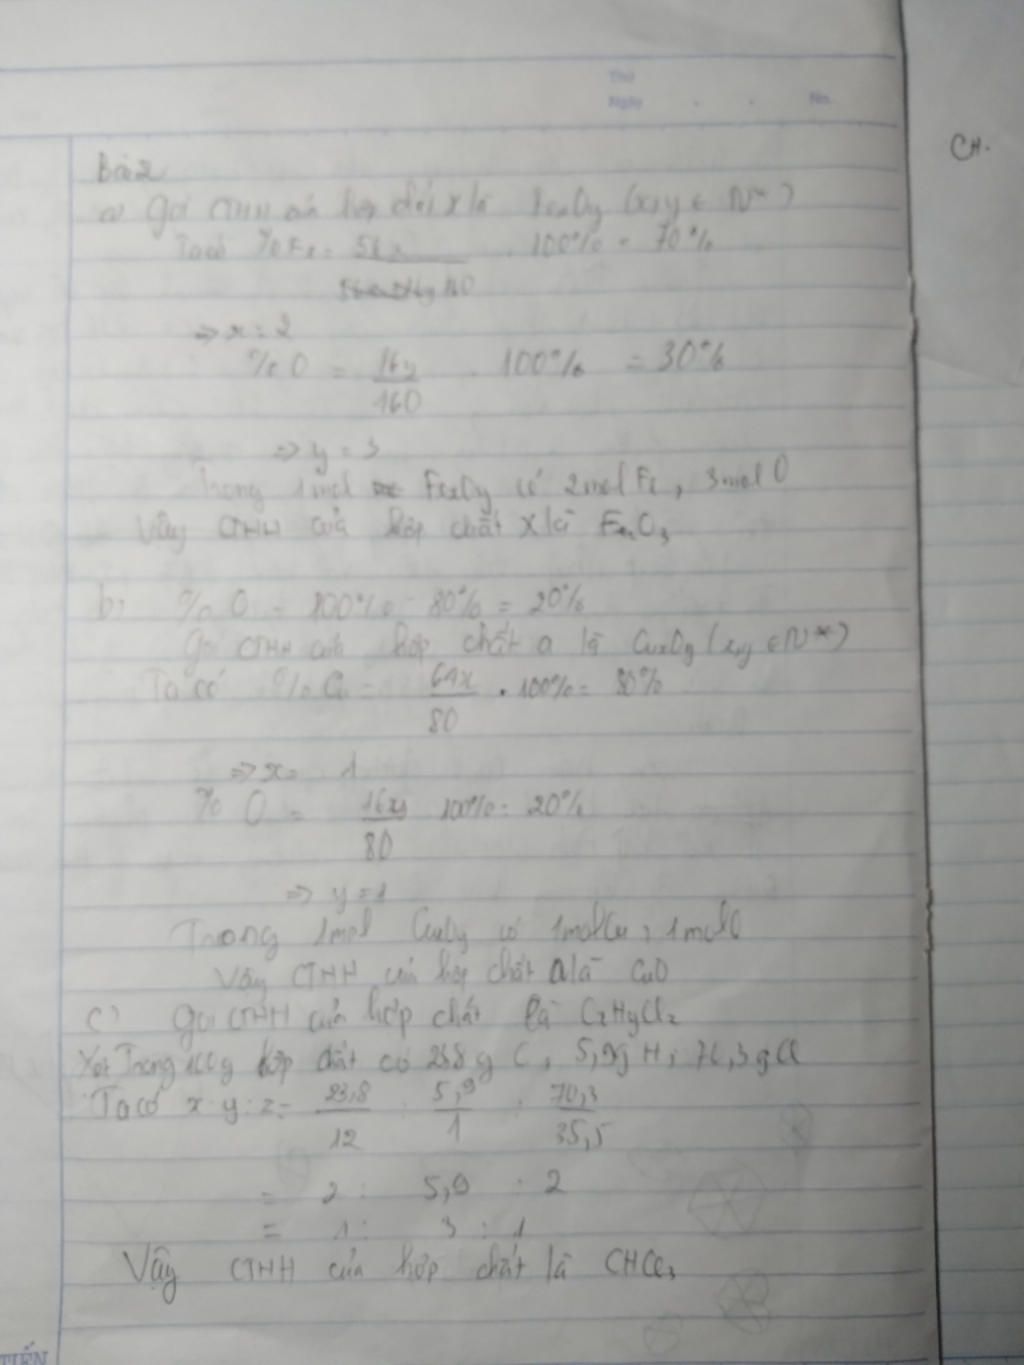 Thứ
Ngày . . No.
CH.
Bài 2
a) Gọi CTHH của hợp chất X là FexOy (x,y ∈ N*)
Ta có %Fe = 56x/160 . 100% = 70%
=> x = 2
%O = 16y/160 . 100% = 30%
=> y = 3
Trong 1mol FexOy có 2mol Fe, 3mol O
Vậy CTHH của hợp chất X là Fe2O3
b) % O = 100% - 80% = 20%
Gọi CTHH của hợp chất a là CuxOy (x,y ∈ N*)
Ta có % Cu = 64x/80 . 100% = 80%
=> x = 1
% O = 16xy/80 100% = 20%
=> y = 1
Trong 1mol CuxOy có 1mol Cu, 1mol O
Vậy CTHH của hợp chất a là CuO
c) Gọi CTHH của hợp chất là CxHyClz
Xét Trong 100g hợp chất có 23,8g C, 5,9g H, 70,3g Cl
Ta có x : y : z = 23,8/12 : 5,9/1 : 70,3/35,5
= 2 : 5,9 : 2
= 1 : 3 : 1
Vậy CTHH của hợp chất là CHCl3
TIẾN